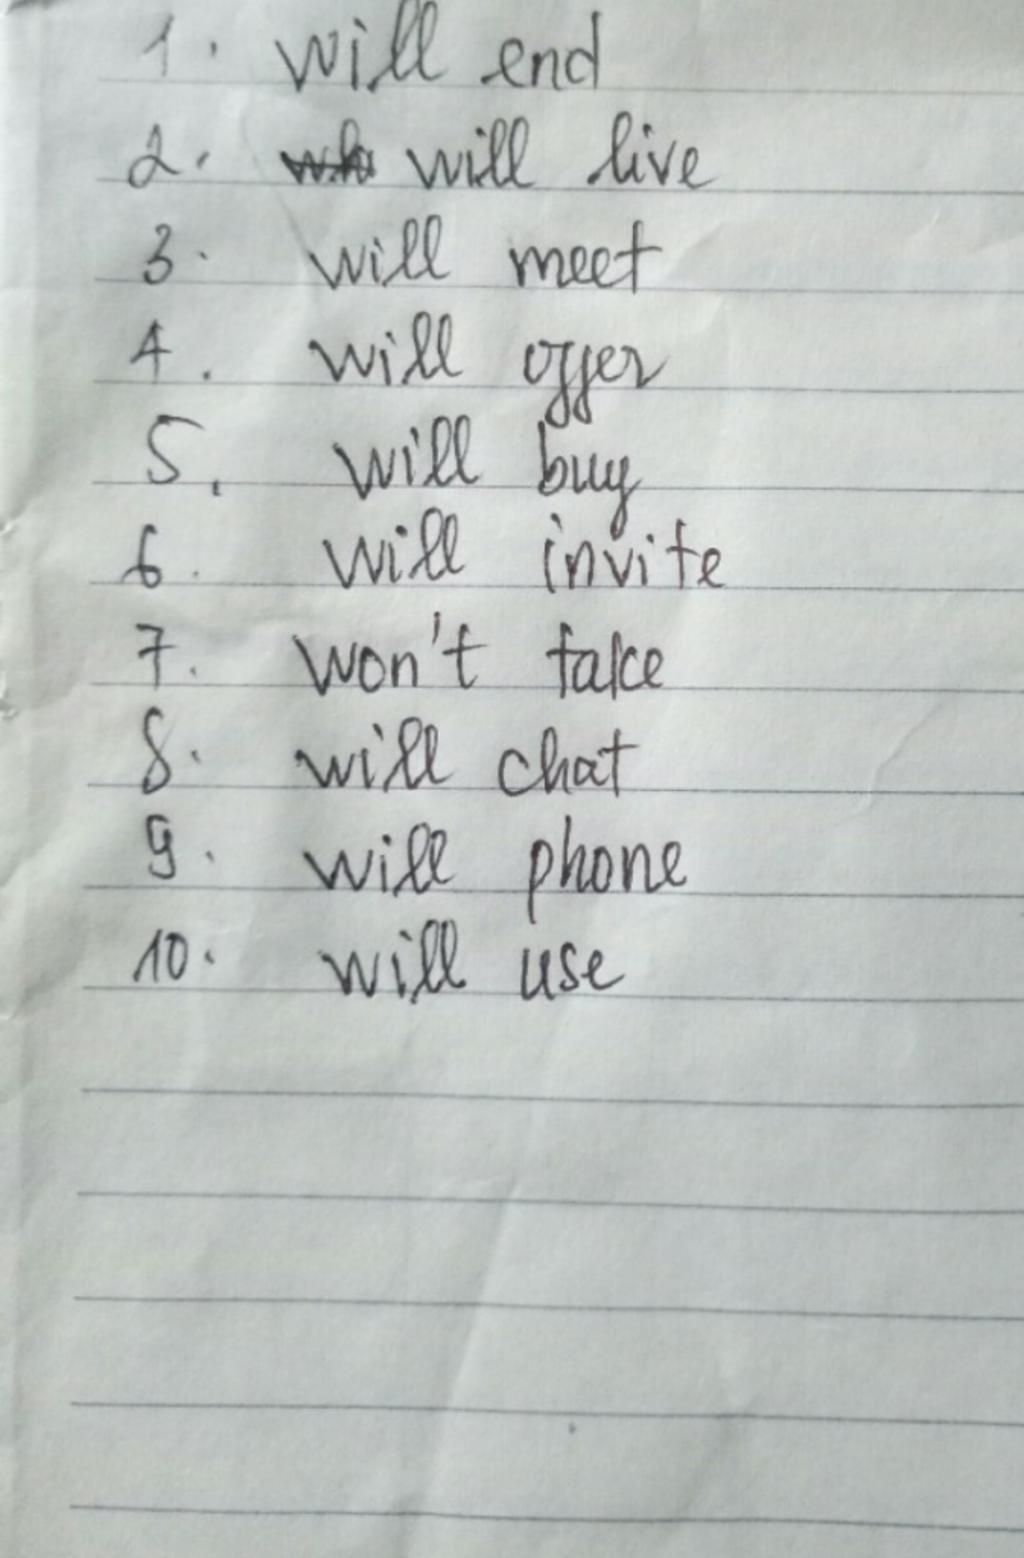 1. will end
2. will live
3. will meet
4. will offer
5. will buy
6. will invite
7. won't take
8. will chat
9. will phone
10. will use